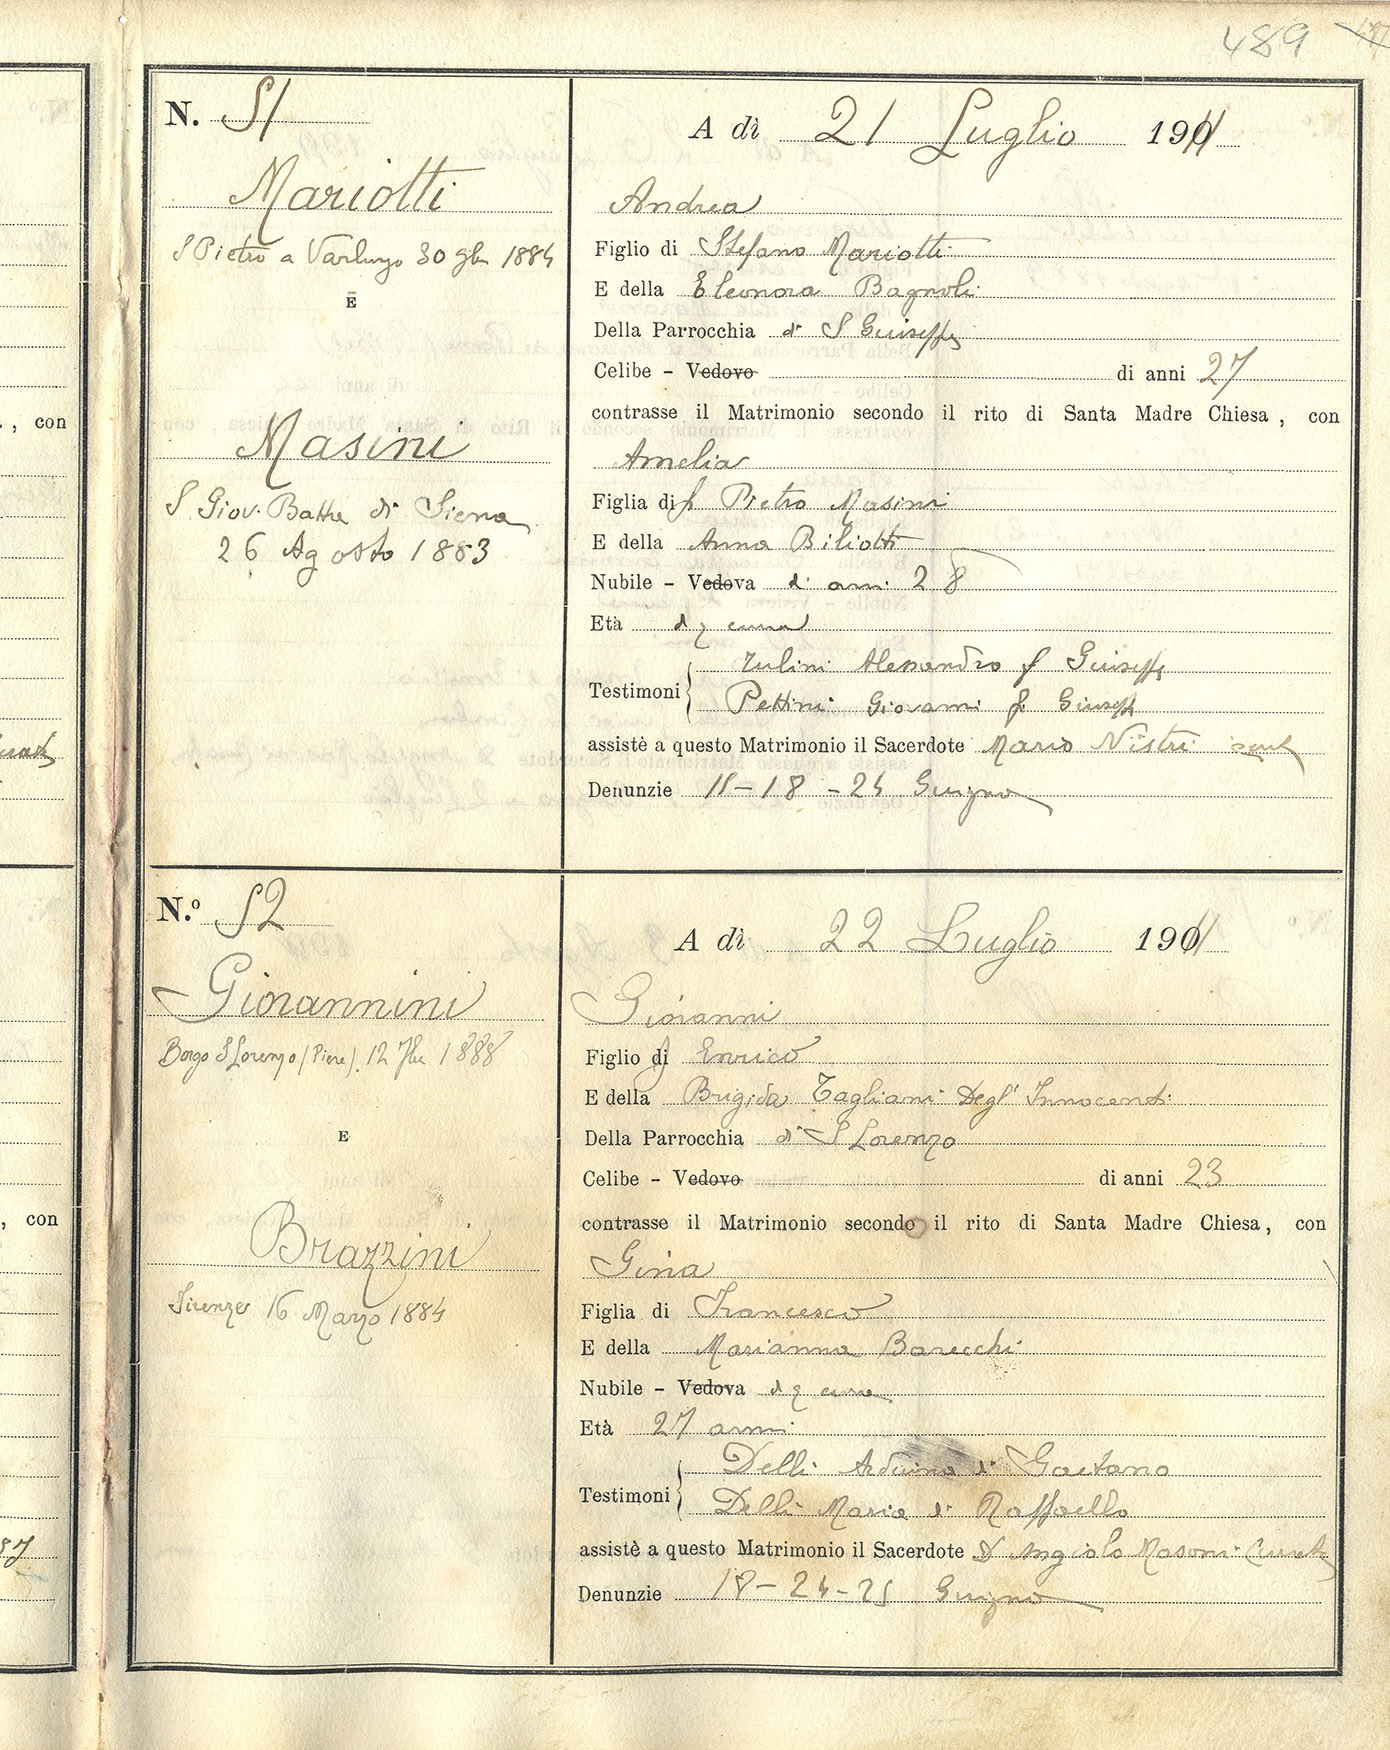 489
N. 51
Mariotti
S Pietro a Varlungo 30 9bre 1884
E
Masini
S Giov. Batta di Siena
26 Agosto 1883
A dì 21 Luglio 1911
Andrea
Figlio di Stefano Mariotti
E della Eleonora Bagnoli
Della Parrocchia di S Giuseppe
Celibe - Vedovo di anni 27
contrasse il Matrimonio secondo il rito di Santa Madre Chiesa, con
Amelia
Figlia di f Pietro Masini
E della Anna Biliotti
Nubile - Vedova di anni 28
Età d q cura
Testimoni
Alessandro f Giuseppe
Pettini Giovanni f Giuseppe
assistè a questo Matrimonio il Sacerdote Mario Nistri
Denunzie 11-18-24 Giugno
N.º 52
Giovannini
Borgo S Lorenzo (Pieve) 12 7bre 1888
E
Brazzini
Firenze 16 Marzo 1884
A dì 22 Luglio 1911
Giovanni
Figlio di f Enrico
E della Brigida Tagliani Degl'Innocenti
Della Parrocchia di S Lorenzo
Celibe - Vedovo di anni 23
contrasse il Matrimonio secondo il rito di Santa Madre Chiesa, con
Gina
Figlia di Francesco
E della Marianna Barecchi
Nubile - Vedova d q cura
Età 27 anni
Testimoni
Delli Arduina di Gaetano
Delli Maria di Raffaello
assistè a questo Matrimonio il Sacerdote D Angiolo Masoni Curato
Denunzie 18-24-25 Giugno
, con
, con